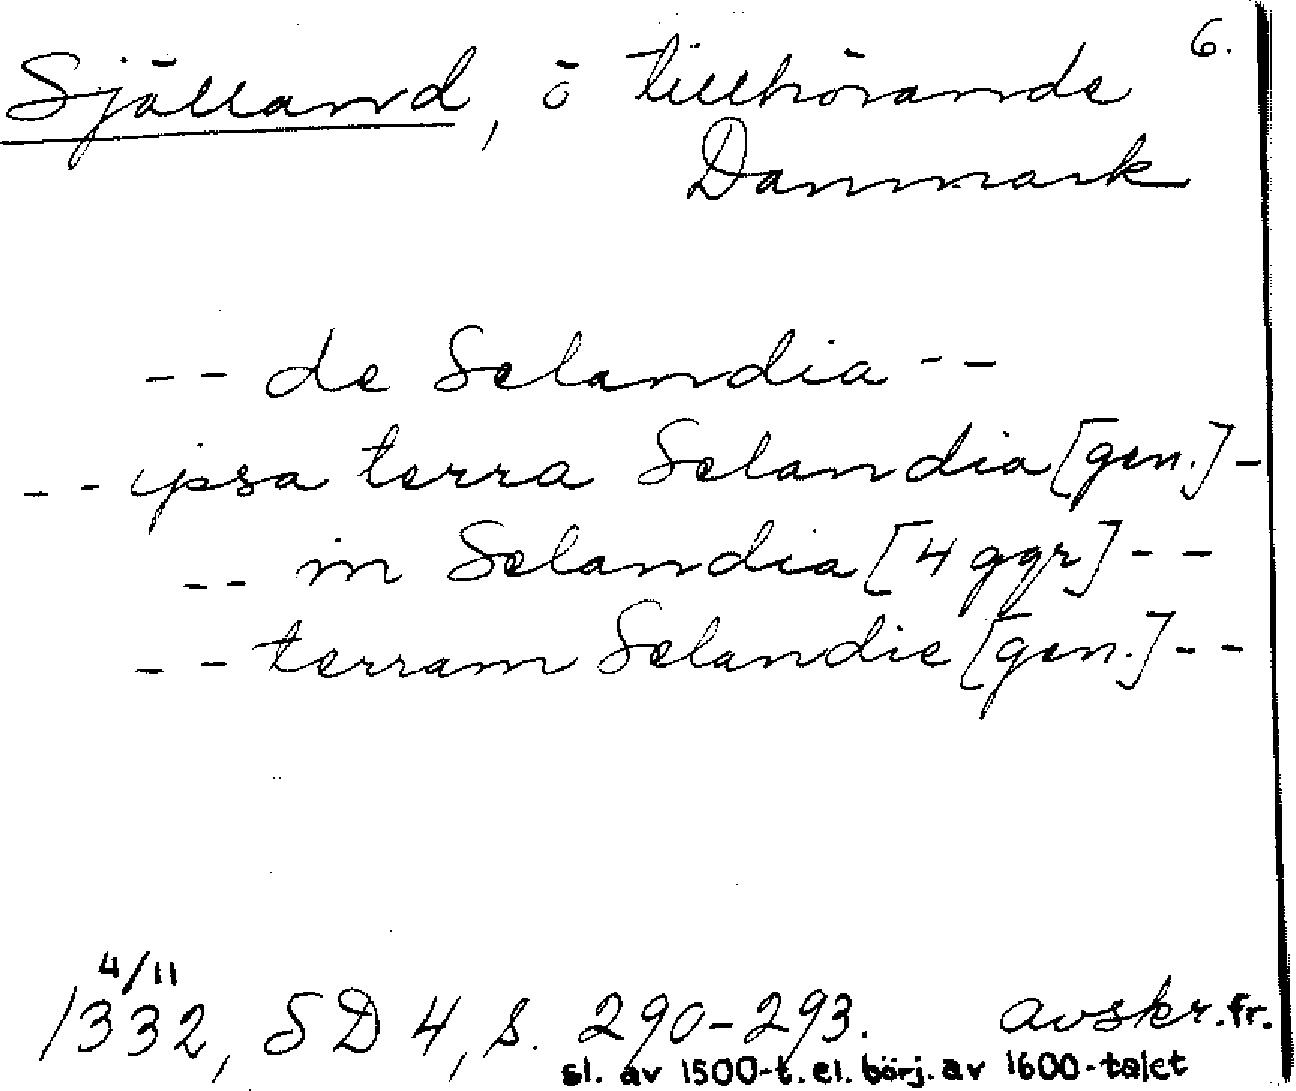 6.
Själland, ö tillhörande
Danmark
-- de Selandia --
-- ipsa terra Selandia [gen.] -
-- in Selandia [4 ggr] --
-- terram Selandie [gen.] --
4/11
1332, SD 4, s. 290-293. avskr. fr.
sl. av 1500-t. el. börj. av 1600-talet